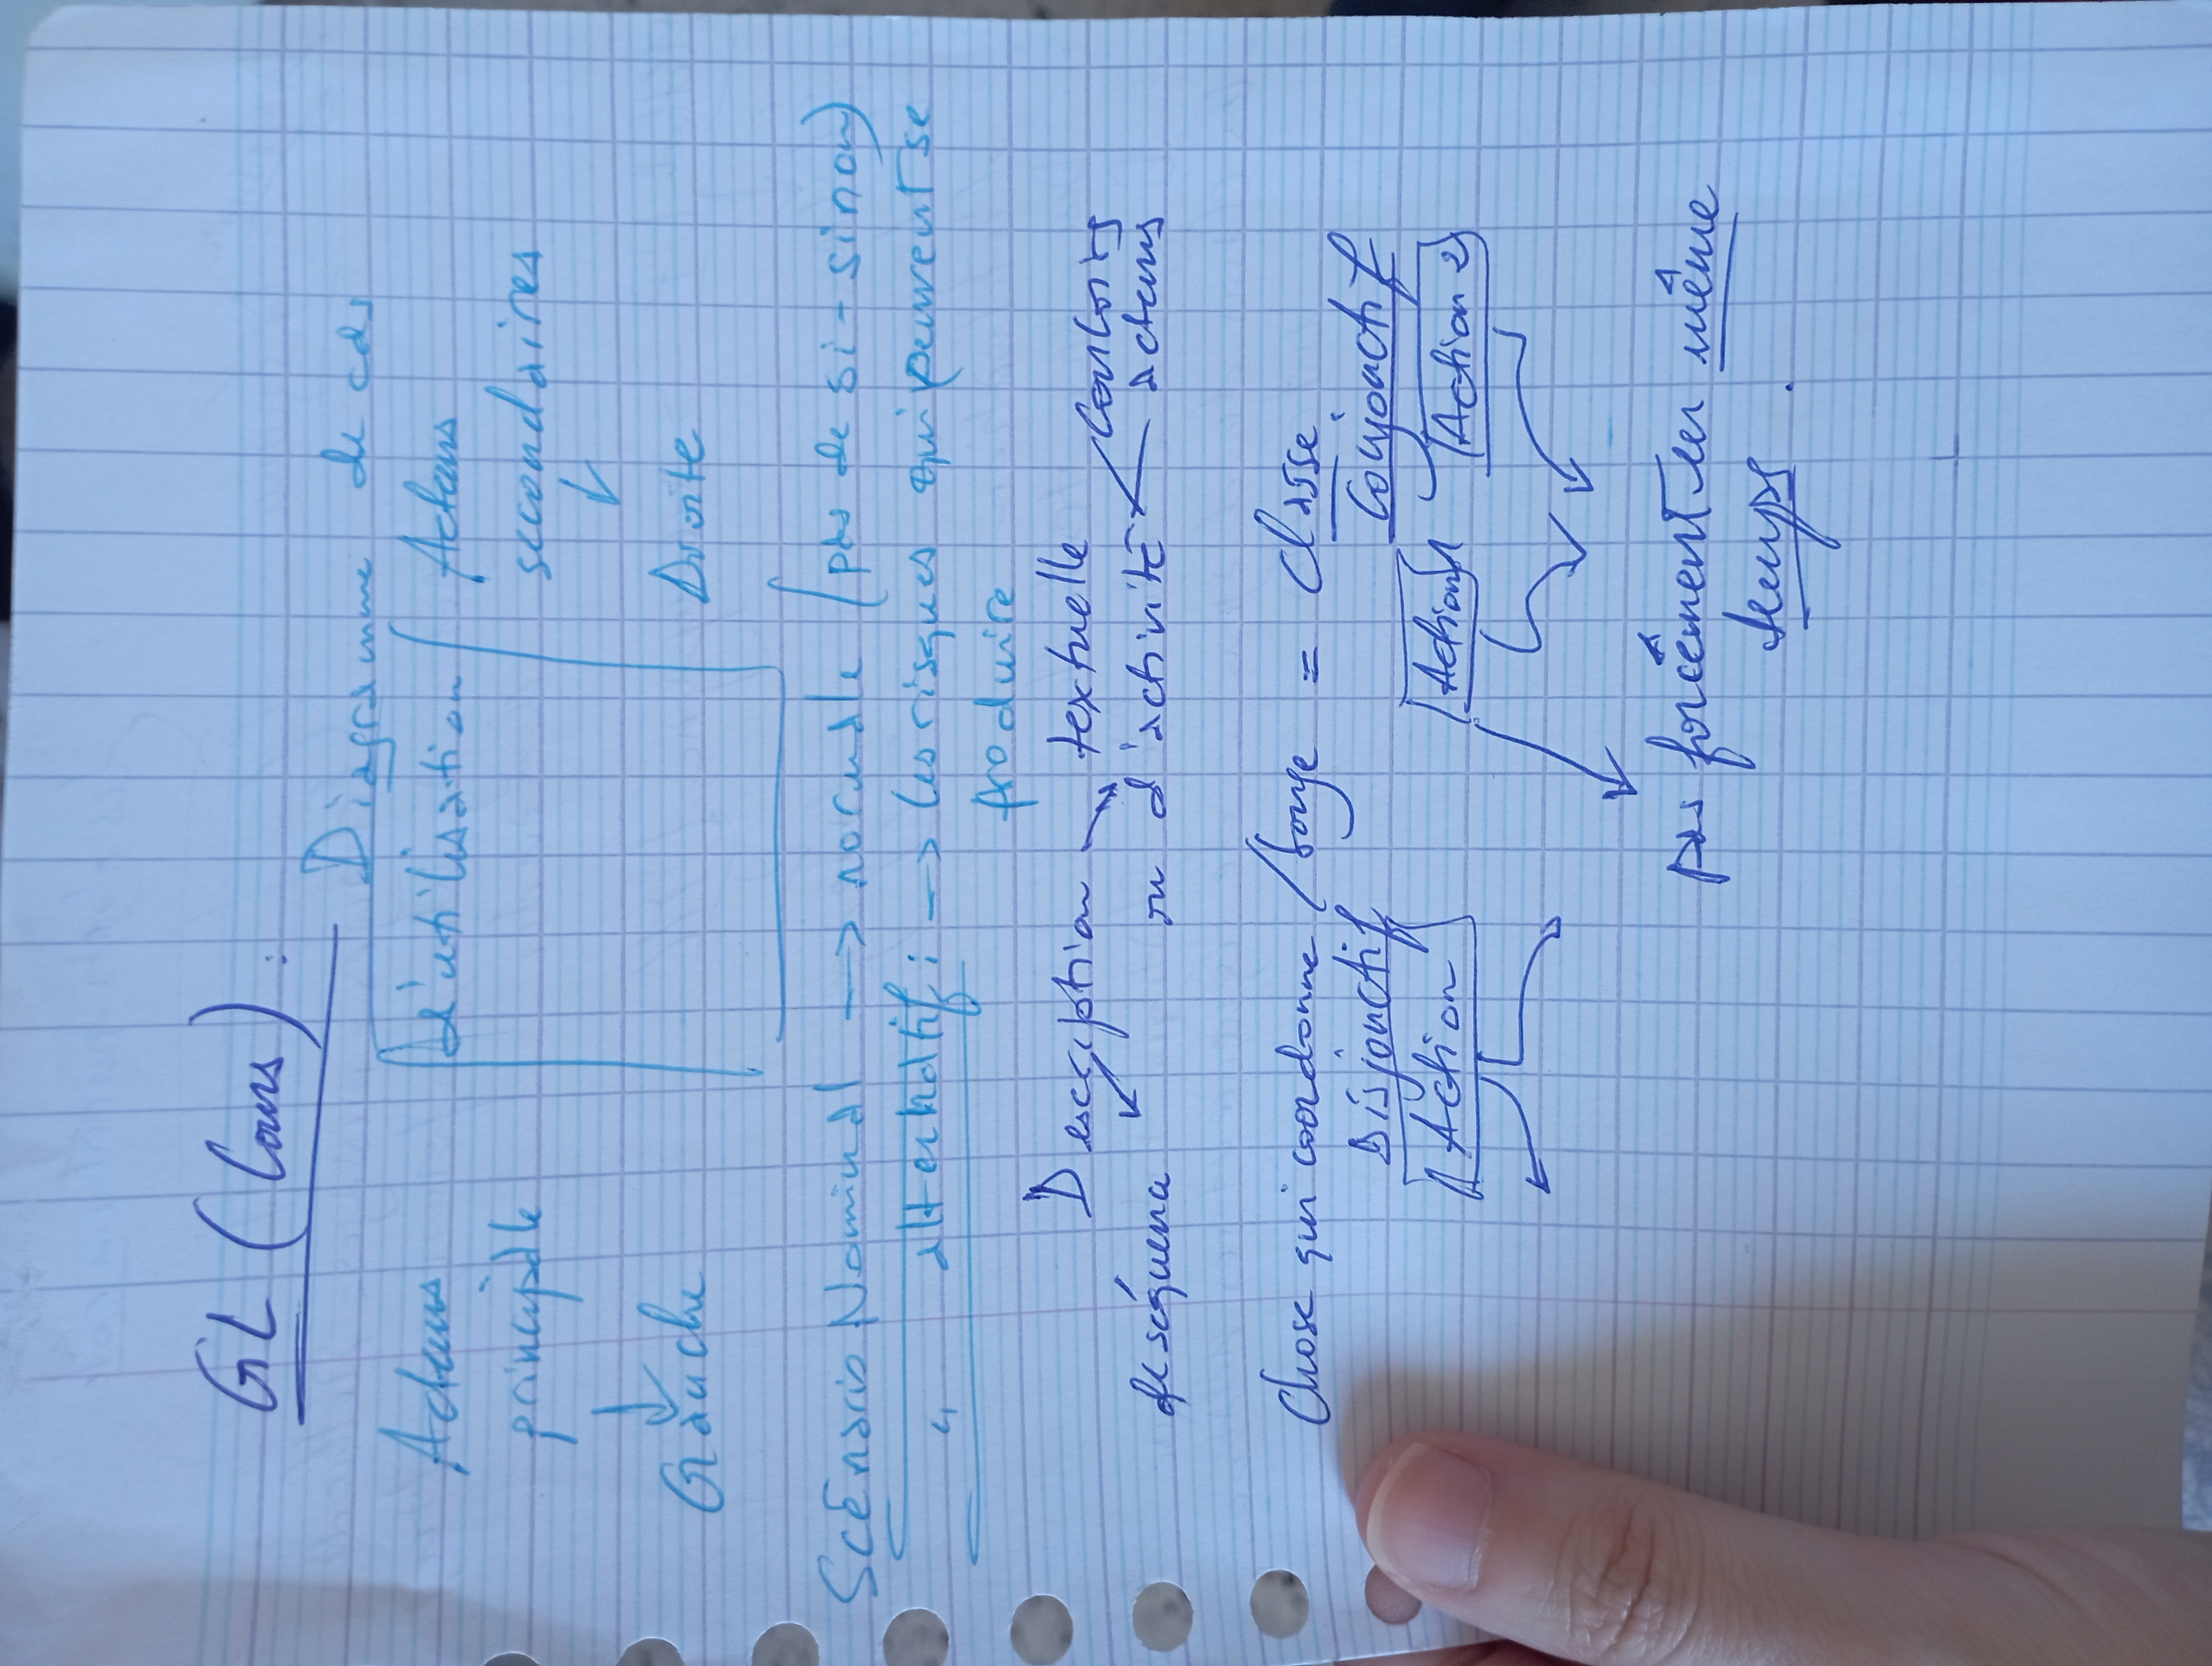 GL (Cours) :
Diagramme de cas
d'utilisation
Acteurs
principale
Gauche
Acteurs
secondaires
Droite
Scénario Nominal -> normale (pas de si-sinon)
" alternatif : -> les risques qui peuvent se
produire
Description textuelle
de séquence ou d'activité
Couloirs
acteurs
Chose qui coordonne / bouge = Classe
Disjonctif
Conjonctif
Action
Action 1
Action 2
pas forcément en même
temps .